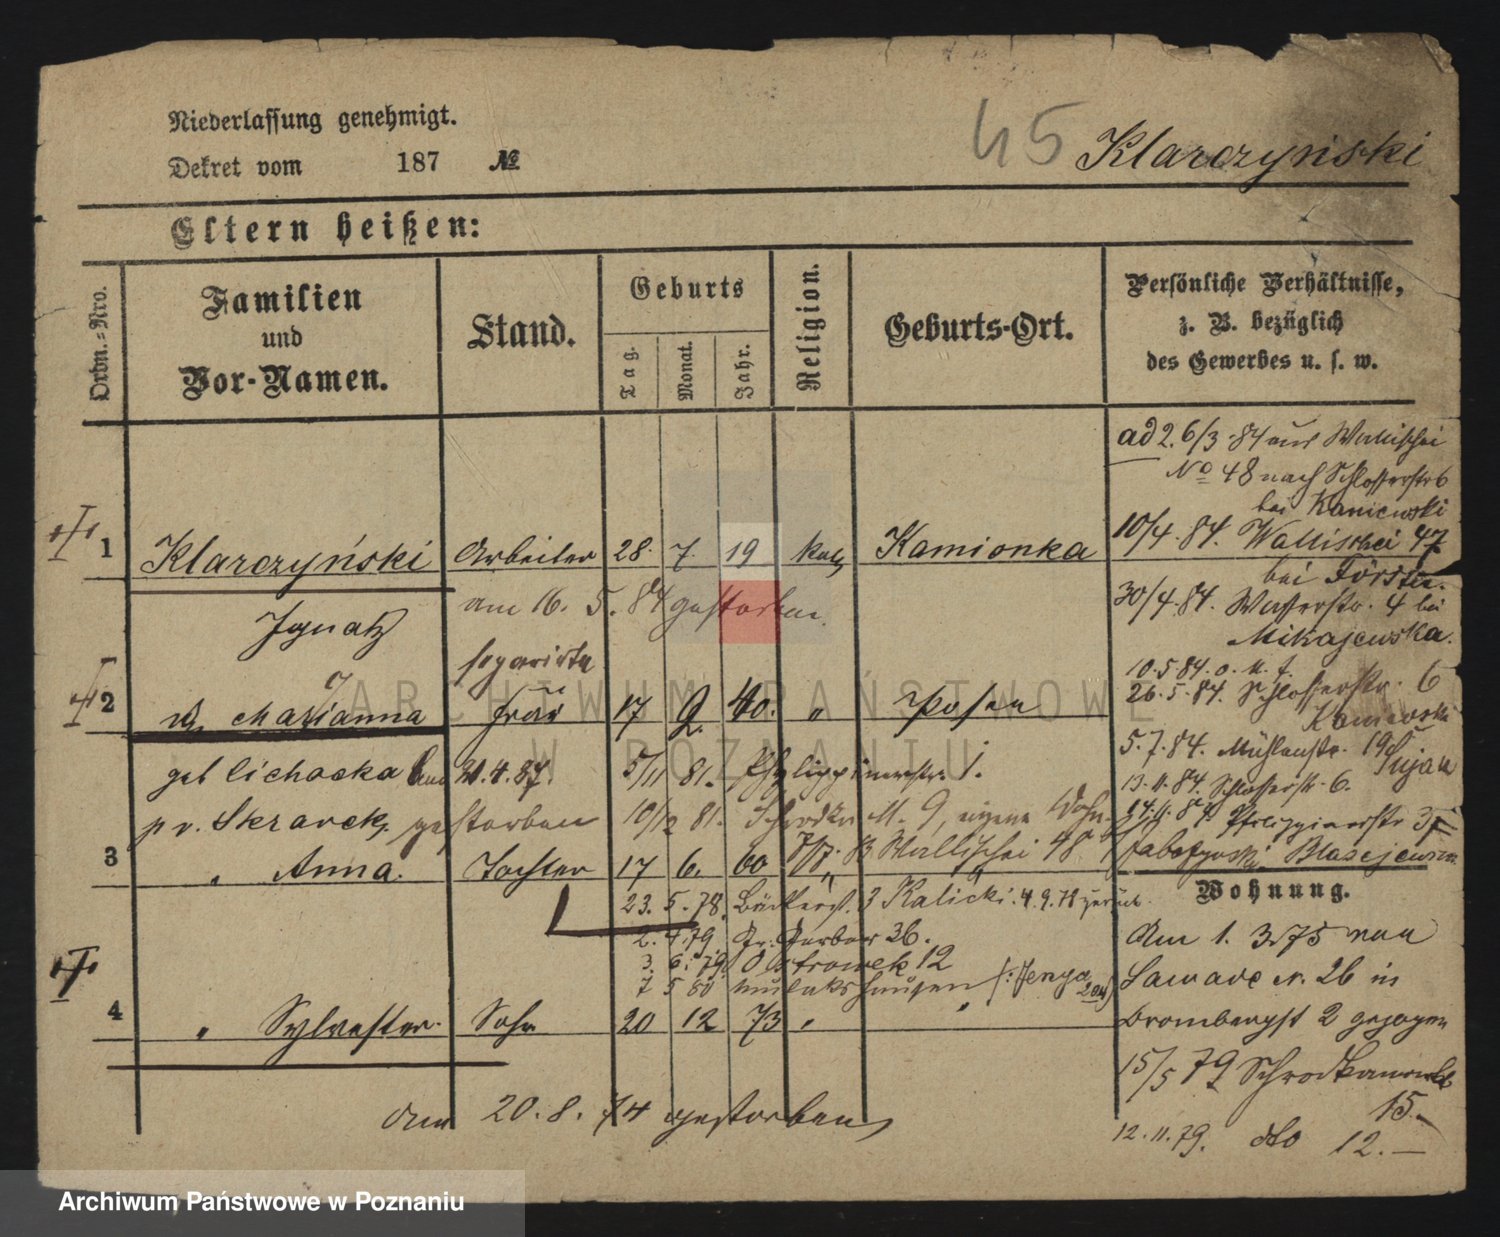 Niederlassung genehmigt.
Dekret vom 187 №
45 Klarczyński
Eltern heißen:
Ordn.-Nro.
Familien
und
Vor-Namen.
Stand.
Geburts
Tag.
Monat.
Jahr.
Religion.
Geburts-Ort.
Persönliche Verhältnisse,
z. B. bezüglich
des Gewerbes u. s. w.
ad 2. 6/3. 84 aus Wallischei
No 48 nach Schlosserstr 6
bei Kaniewski
10/4. 84. Wallischei 47
bei Förster.
1 Klarczyński Arbeiter 28. 7. 19 kath Kamionka
Ignatz
am 16. 5. 84 gestorben.
30/4. 84. Wasserstr. 4 bei
Mikajewska.
10. 5 84. o. M. f.
26. 5. 84. Schlosserstr. 6
Kaniewski
separirte
2 Marianna Frau 17 2. 40. " Posen
5. 7. 84. Mühlenstr. 19 Sujak
13. 11. 84. Schlosserstr. 6.
geb Cichocka 21. 4. 87. 5/11 81. Philippinerstr. 1.
pr. Skrarek, gestorben 10/12 81. Schrodka M. 9, eigene Wohn.
Philippinerstr 3
Blazejewska
3 " Anna. Tochter 17 6. 60 B Wallischei 48
Wohnung.
23. 5. 78. Bäckerst. 3 Kalicki. 4. 9. 78 zurück.
2. 4. 79. Gr. Gerber 36.
3. 6. 79. Ostrowek 12
7 5 80
Am 1. 3. 75 von
Sawade N. 26 in
Brombergst 2 gezogen
4 " Sylvester. Sohn 20 12 73 " "
15/5 79 Schrodkamarkt
15.
12. 11. 79. dto 12. —
am 20. 8. 74 gestorben
ARCHIWUM PAŃSTWOWE
W POZNANIU
Archiwum Państwowe w Poznaniu